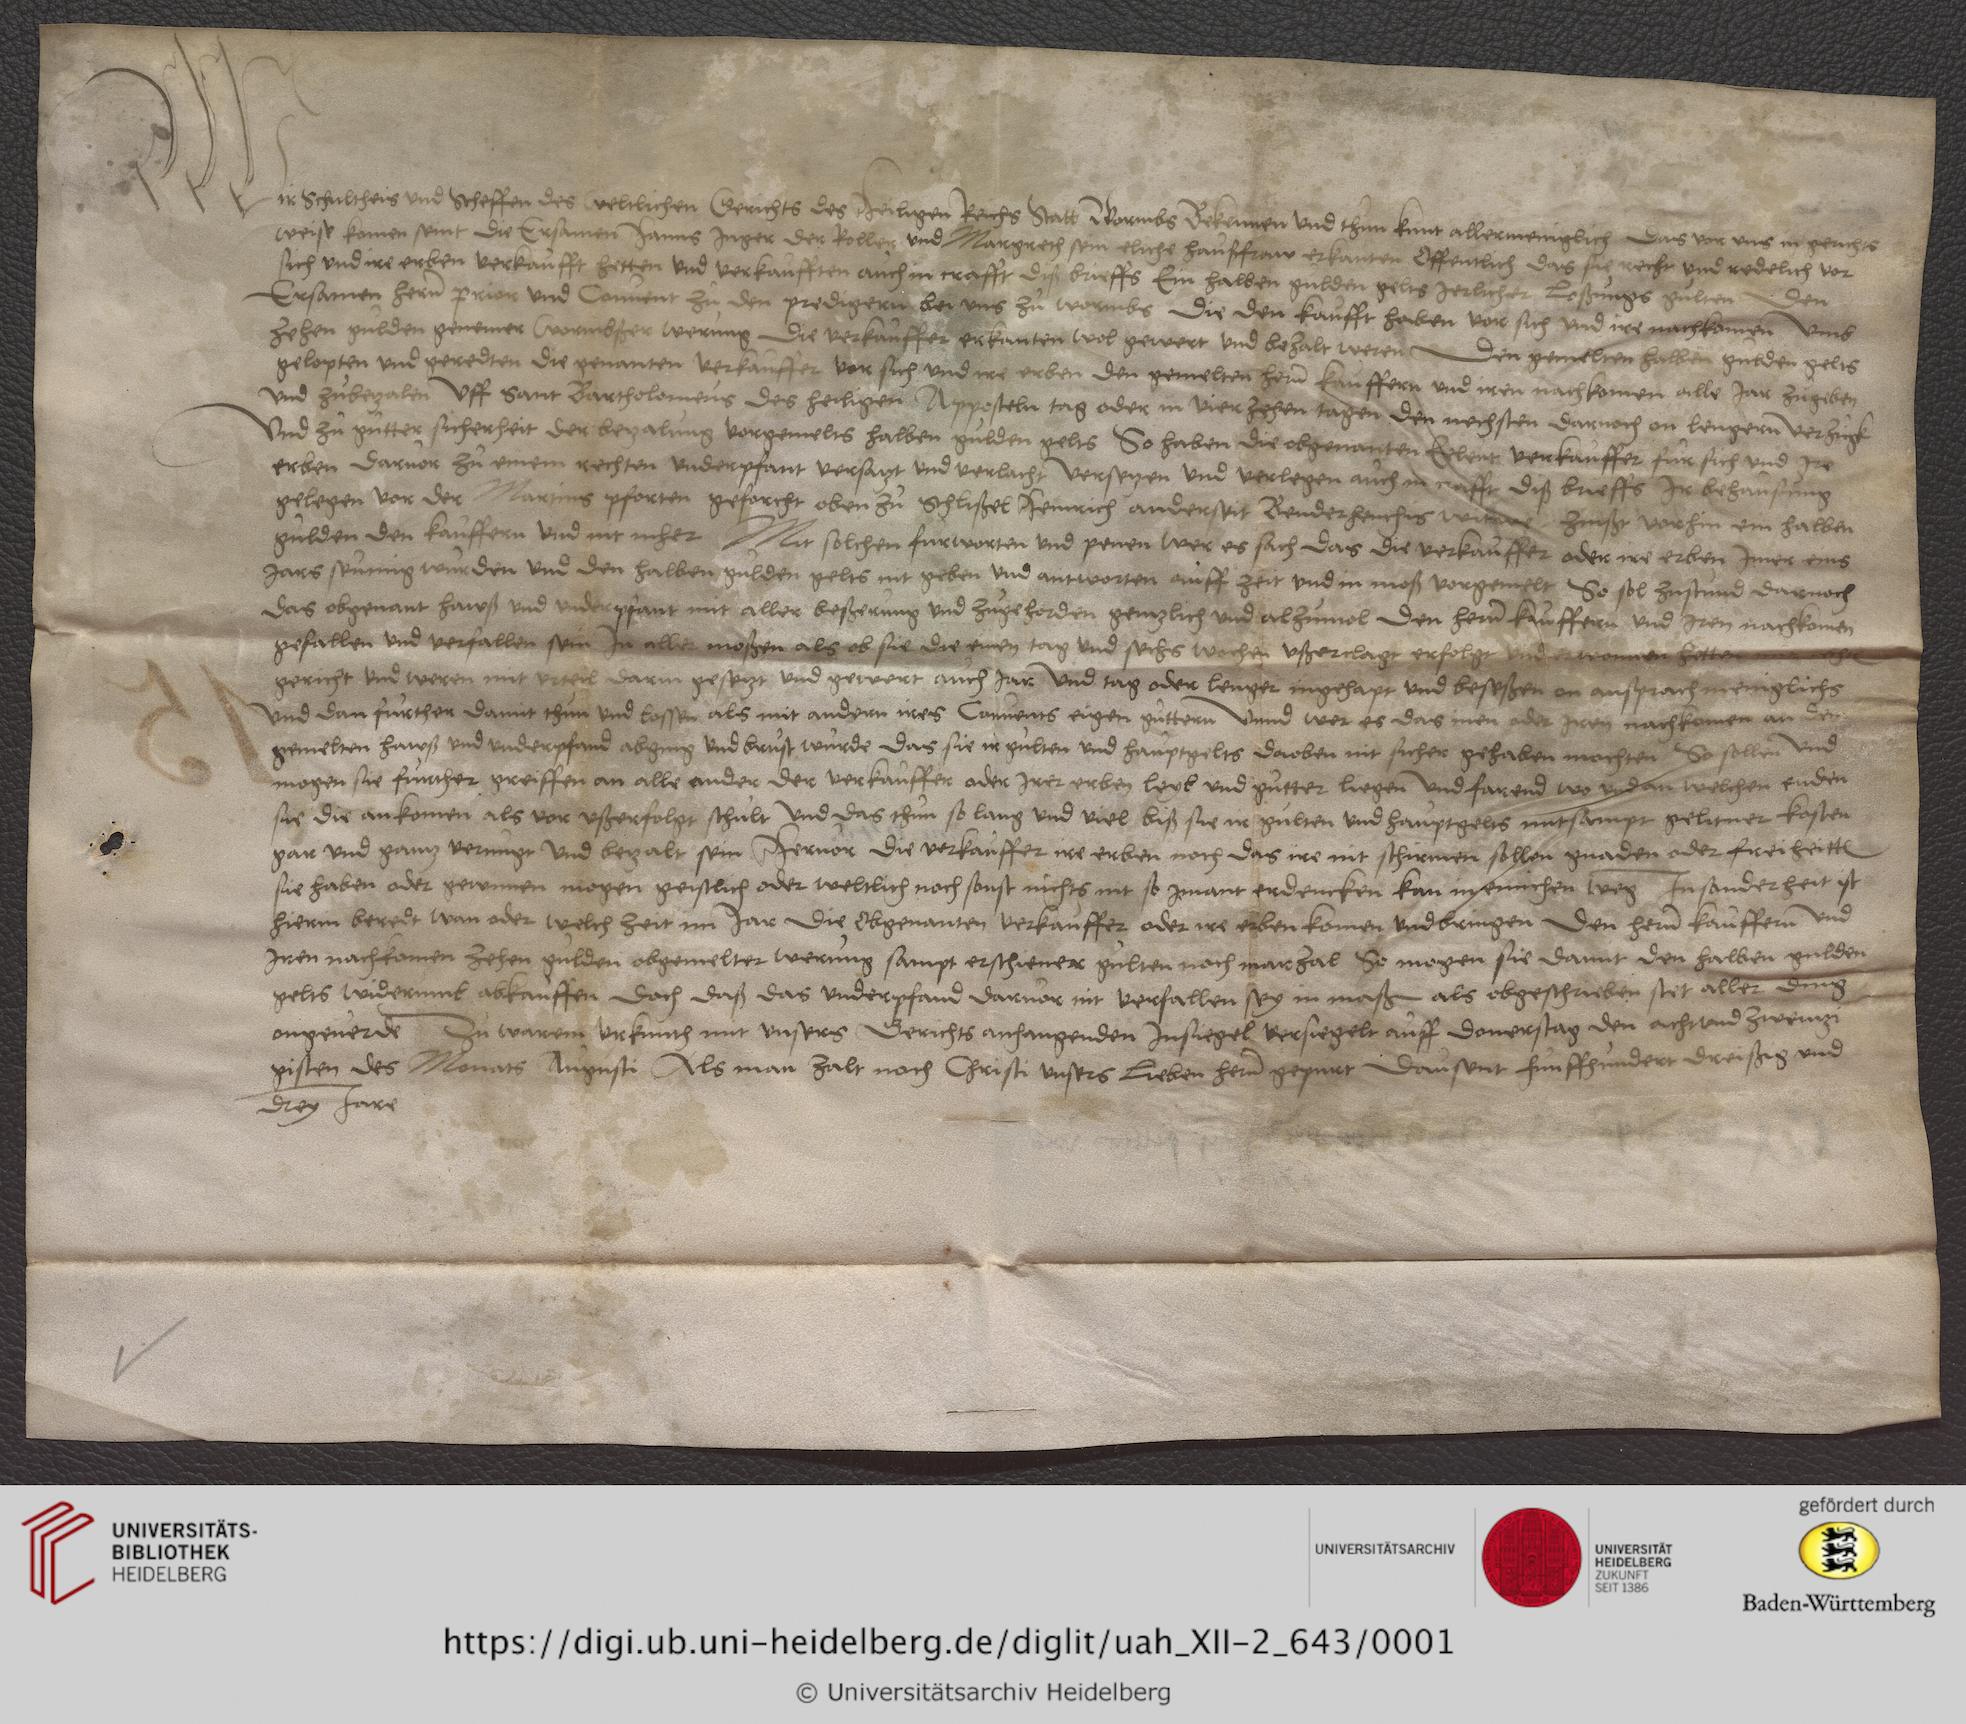 Wir Schultheis und Scheffen des weltlichen Gerichts des Heiligen Reichs Statt Wormbs Bekennen und thun kunt allermeniglich Das vor uns in gerichts
weise komen seint die Ersamen der Koller und Margreth sein eliche haußfraw erkanten Offentlich das sie recht und redelich vor
sich und ire erben verkaufft hetten und verkaufften auch in crafft diß brieffs Ein halben gulden gelts Jerlicher Loßungs gulten Den
Ersamen hern Prior und Convent zu den predigern bei uns zu wormbs Die den kaufft haben vor sich und ire nachkomen Umb
zehen gulden genemer Wormbsser werung Die verkauffer erkanten wol gewert und bezalt weren Den gemelten halben gulden gelts
gelopten und geredten die genanten verkauffer vor sich und ire erben den gemelten hern kauffern und iren nachkomen alle Jar zugeben
und zubezalen Uff Sant Bartholomeus des heiligen Apposteln tag oder in vierzehen tagen den nechsten darnoch on lengern verzugk
Und zu gutter sicherheit der bezalung vorgemelts halben gulden gelts So haben die obgenanten Eeleut verkauffer fur sich und Ire
erben darvor zu einem rechten underpfant versatzt und verlacht versetzen und verlegen auch in crafft diß brieffs Ir behausung
gelegen vor der Martins pforten geforcht oben zu Schlußel Heinrich anderseit witwe zinßt vorhin ein halben
gulden den kauffern und nit meher Mit solchen furworten und penen wer es sach das die verkauffer oder ire erben Imer eins
Jars seumig wurden und den halben gulden gelts nit geben und antworten auff zeit und in moß vorgemelt So sol zustund darnoch
das obgenant hawß und underpfant mit aller beßerung und zugehorden gentzlich und alzumol Den hern kauffern und Iren nachkomen
gefallen und verfallen sein In aller moßen als ob sie die einen tag und sechs wochen ußerclagt erfolgt und erwonnen hetten
gericht und weren mit urteil darin gesetzt und gewert auch Jar und tag oder lenger ingehapt und beseßen on ansprach meniglichs
und dan further damit thun und lossen als mit andern ires Convents eigen guttern Unnd wer es das inen oder Iren nachkomen an den
gemelten hawß und underpfand abging und brust wurde das sie ir gulten und hauptgelts daoben nit sicher gehaben mochten So sollen und
mogen sie further greiffen an alle ander der verkauffer oder Irer erben leyb und gutter liegen und farend wo und an welchen enden
sie die ankomen als vor ußerfolgt schult Und das thun so lang und viel biß sie ir gulten und hauptgelts mitsampt gelitner kosten
gar und gantz vernugt und bezalt sein Hervor die verkauffer ire erben noch das ire nit schirmen sollen gnaden oder freiheitt
sie haben oder gewinnen mogen geistlich oder weltlich noch sonst nichts nit so imant erdencken kan in einichen weg Insonderheit ist
hierin beredt wan oder welch zeit im Jar Die Obgenanten verkauffer oder ire erben komen und bringen Den hern kauffern und
Iren nachkomen zehen gulden obgemelter werung sampt erschiener gulten noch marzal So mogen sie damit den halben gulden
gelts widerumb abkauffen Doch daß das underpfand darvor nit verfallen sey in moß als obgeschrieben stet aller ding
ongeverde Zu warem urkunth mit unsers Gerichts anhangenden Insiegel versiegelt auff donerstag den acht und zwentzi
gisten des Monats Augusti Als man zalt noch Christi unsers Lieben hern gepurt Dausent funffhundert dreissig und
drey Jare
15
UNIVERSITÄTS-
BIBLIOTHEK
HEIDELBERG
UNIVERSITÄTSARCHIV
UNIVERSITÄT
HEIDELBERG
ZUKUNFT
SEIT 1386
gefördert durch
Baden-Württemberg
https://digi.ub.uni-heidelberg.de/diglit/uah_XII-2_643/0001
© Universitätsarchiv Heidelberg